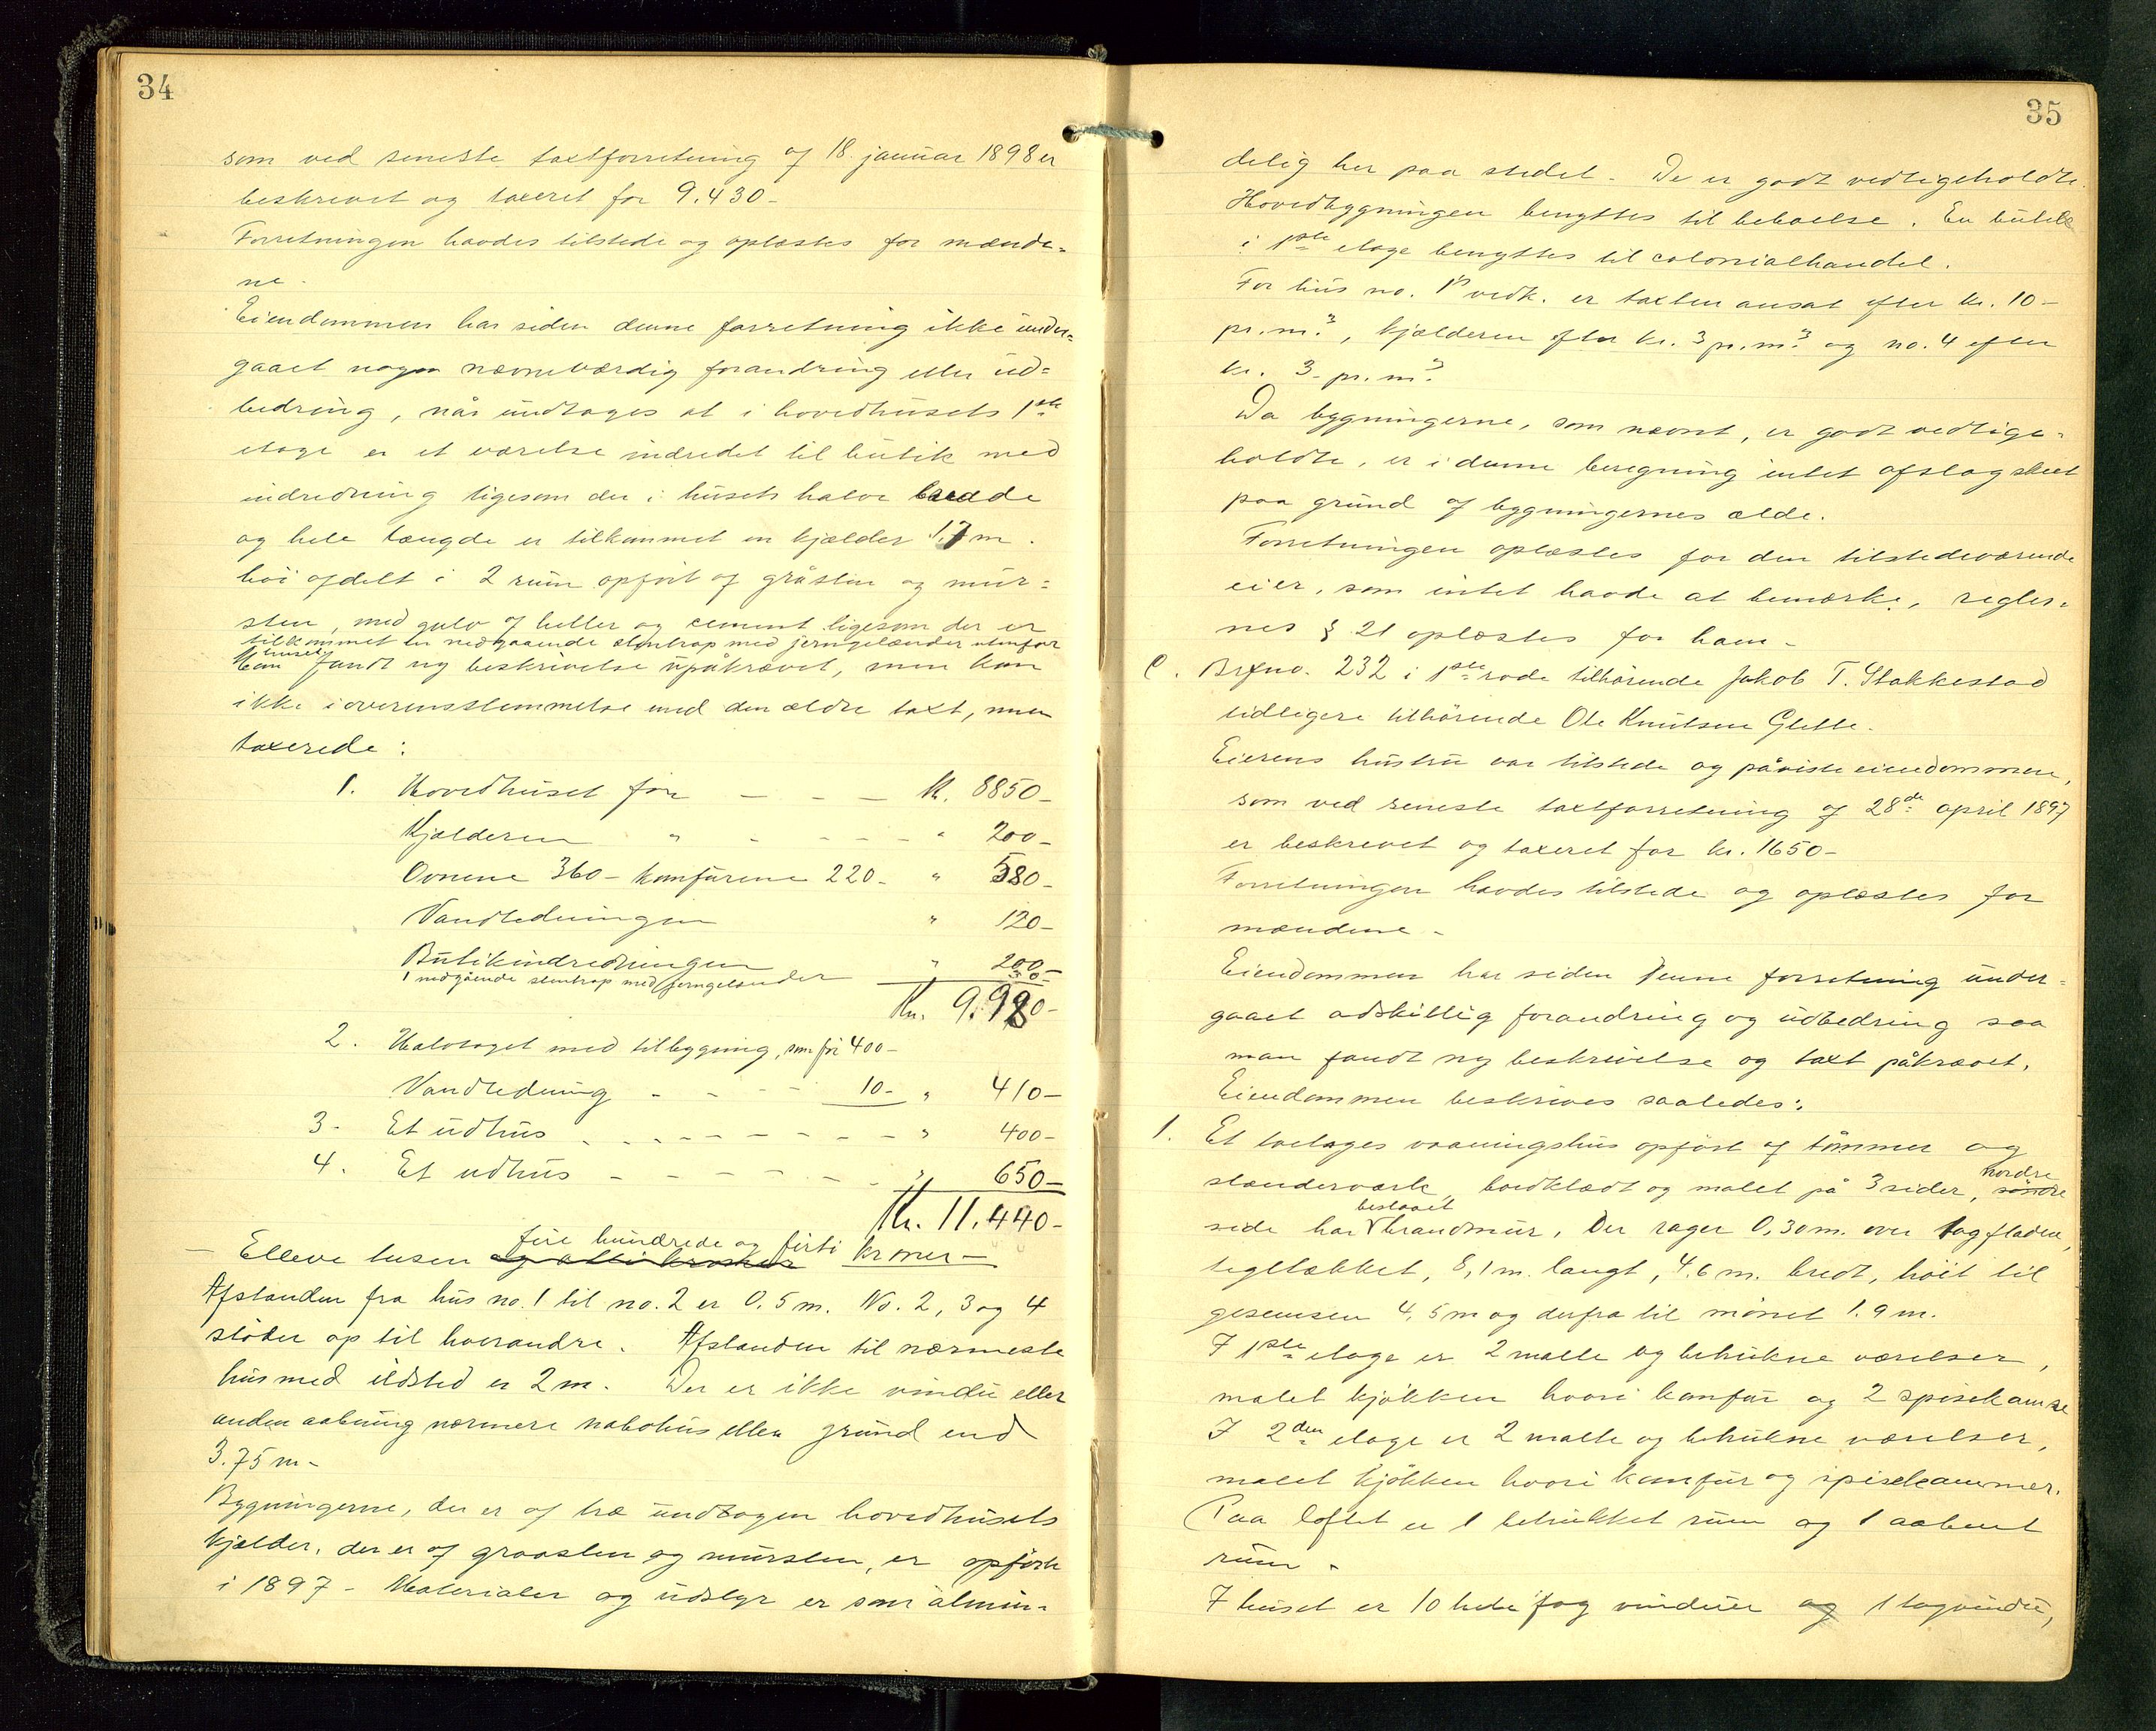 34
som ved seneste taxtforretning af 18. januar 1898 er
beskrevet og taxeret for 9.430-
Forretningen havdes tilstede og oplæstes for mænde=
ne.
Eiendommen har siden denne forretning ikke under=
gaaet nogen nævneværdig forandring eller ud=
bedring, når undtages at i hovedhusets 1ste
etage er et værelse indredet til butik med
indredning ligesom der i husets halve bredde
og hele længde er tilkommet en kjælder 1.7 m.
høi afdelt i 2 rum opført af gråsten og mur=
sten, med gulv af heller og cement ligesom der er
tilkommet en nedgaaende stentrap med jerngelænder utenfor
huset
Man fandt ny beskrivelse upåkrævet, men kom
ikke i overensstemmelse med den ældre taxt, men
taxerede:
1. Hovedhuset for - - - kr. 8850-
Kjælderen " - - - - " 200-
Ovnene 360- Komfurene 220- " 580-
Vandledningen " 120-
Butikindredningen " 200-
1 nedgående stentrap med jerngelænder 30-
Kr. 9.980-
2. Halvtaget med tilbygning, som før 400-
Vandledning - - - 10- " 410-
3. Et udhus - - - - - - - " 400-
4. Et udhus - - - - - - " 650-
Kr. 11.440-
fire hundrede og firti
- Elleve tusen og otti kroner kroner -
Afstanden fra hus no. 1 til no. 2 er 0.5 m. No. 2, 3 og 4
støder op til hverandre. Afstanden til nærmeste
hus med ildsted er 2 m. Der er ikke vindu eller
anden aabning nærmere nabohus eller grund end
3.75 m-
Bygningerne, der er af træ undtagen hovedhusets
kjælder, der er af graasten og mursten, er opførte
i 1897- Materialer og udstyr er som almin-
35
delig her paa stedet. De er godt vedligeholdte.
Hovedbygningen benyttes til beboelse. En butik
i 1ste etage benyttes til colonialhandel.
For hus no. 1s vedk. er taxten ansat efter kr. 10-
pr. m3, kjælderen efter kr. 3 pr. m3 og no. 4 efter
kr. 3- pr. m3.
Da bygningerne, som nævnt, er godt vedlige-
holdte, er i denne beregning intet afslag skeet
paa grund af bygningernes ælde.
Forretningen oplæstes for den tilstedeværende
eier, som intet havde at bemærke, regler-
nes § 21 oplæstes for ham-
C. Brfno. 232 i 1ste rode tilhørende Jakob T. Stakkestad
tidligere tilhørende Ole Knutsen Glette.
Eierens hustru var tilstede og påviste eiendommen,
som ved seneste taxtforretning af 28de april 1897
er beskrevet og taxeret for kr. 1650-
Forretningen havdes tilstede og oplæstes for
mændene-
Eiendommen har siden denne forretning under-
gaaet adskillig forandring og udbedring saa
man fandt ny beskrivelse og taxt påkrævet.
Eiendommen beskrives saaledes:
1. Et toetages vaaningshus opført af tømmer og
nordre
stænderværk, bordklædt og malet på 3 sider, søndre
beslaaet
side har brandmur, der rager 0,30 m. over tagfladen,
tegltækket, 8,1 m. langt, 4.6 m. bredt, høit til
gesemsen 4,5 m og derfra til mønet 1.9 m.
I 1ste etage er 2 malte og betrukne værelser,
malet kjøkken hvori komfur og 2 spisekamre
I 2den etage er 2 malte og betrukne værelser,
malet kjøkken hvori komfur og spisekammer.
Paa loftet er 1 betrukket rum og 1 aabent
rum-
I huset er 10 hele fag vinduer og 1 tagvindu,